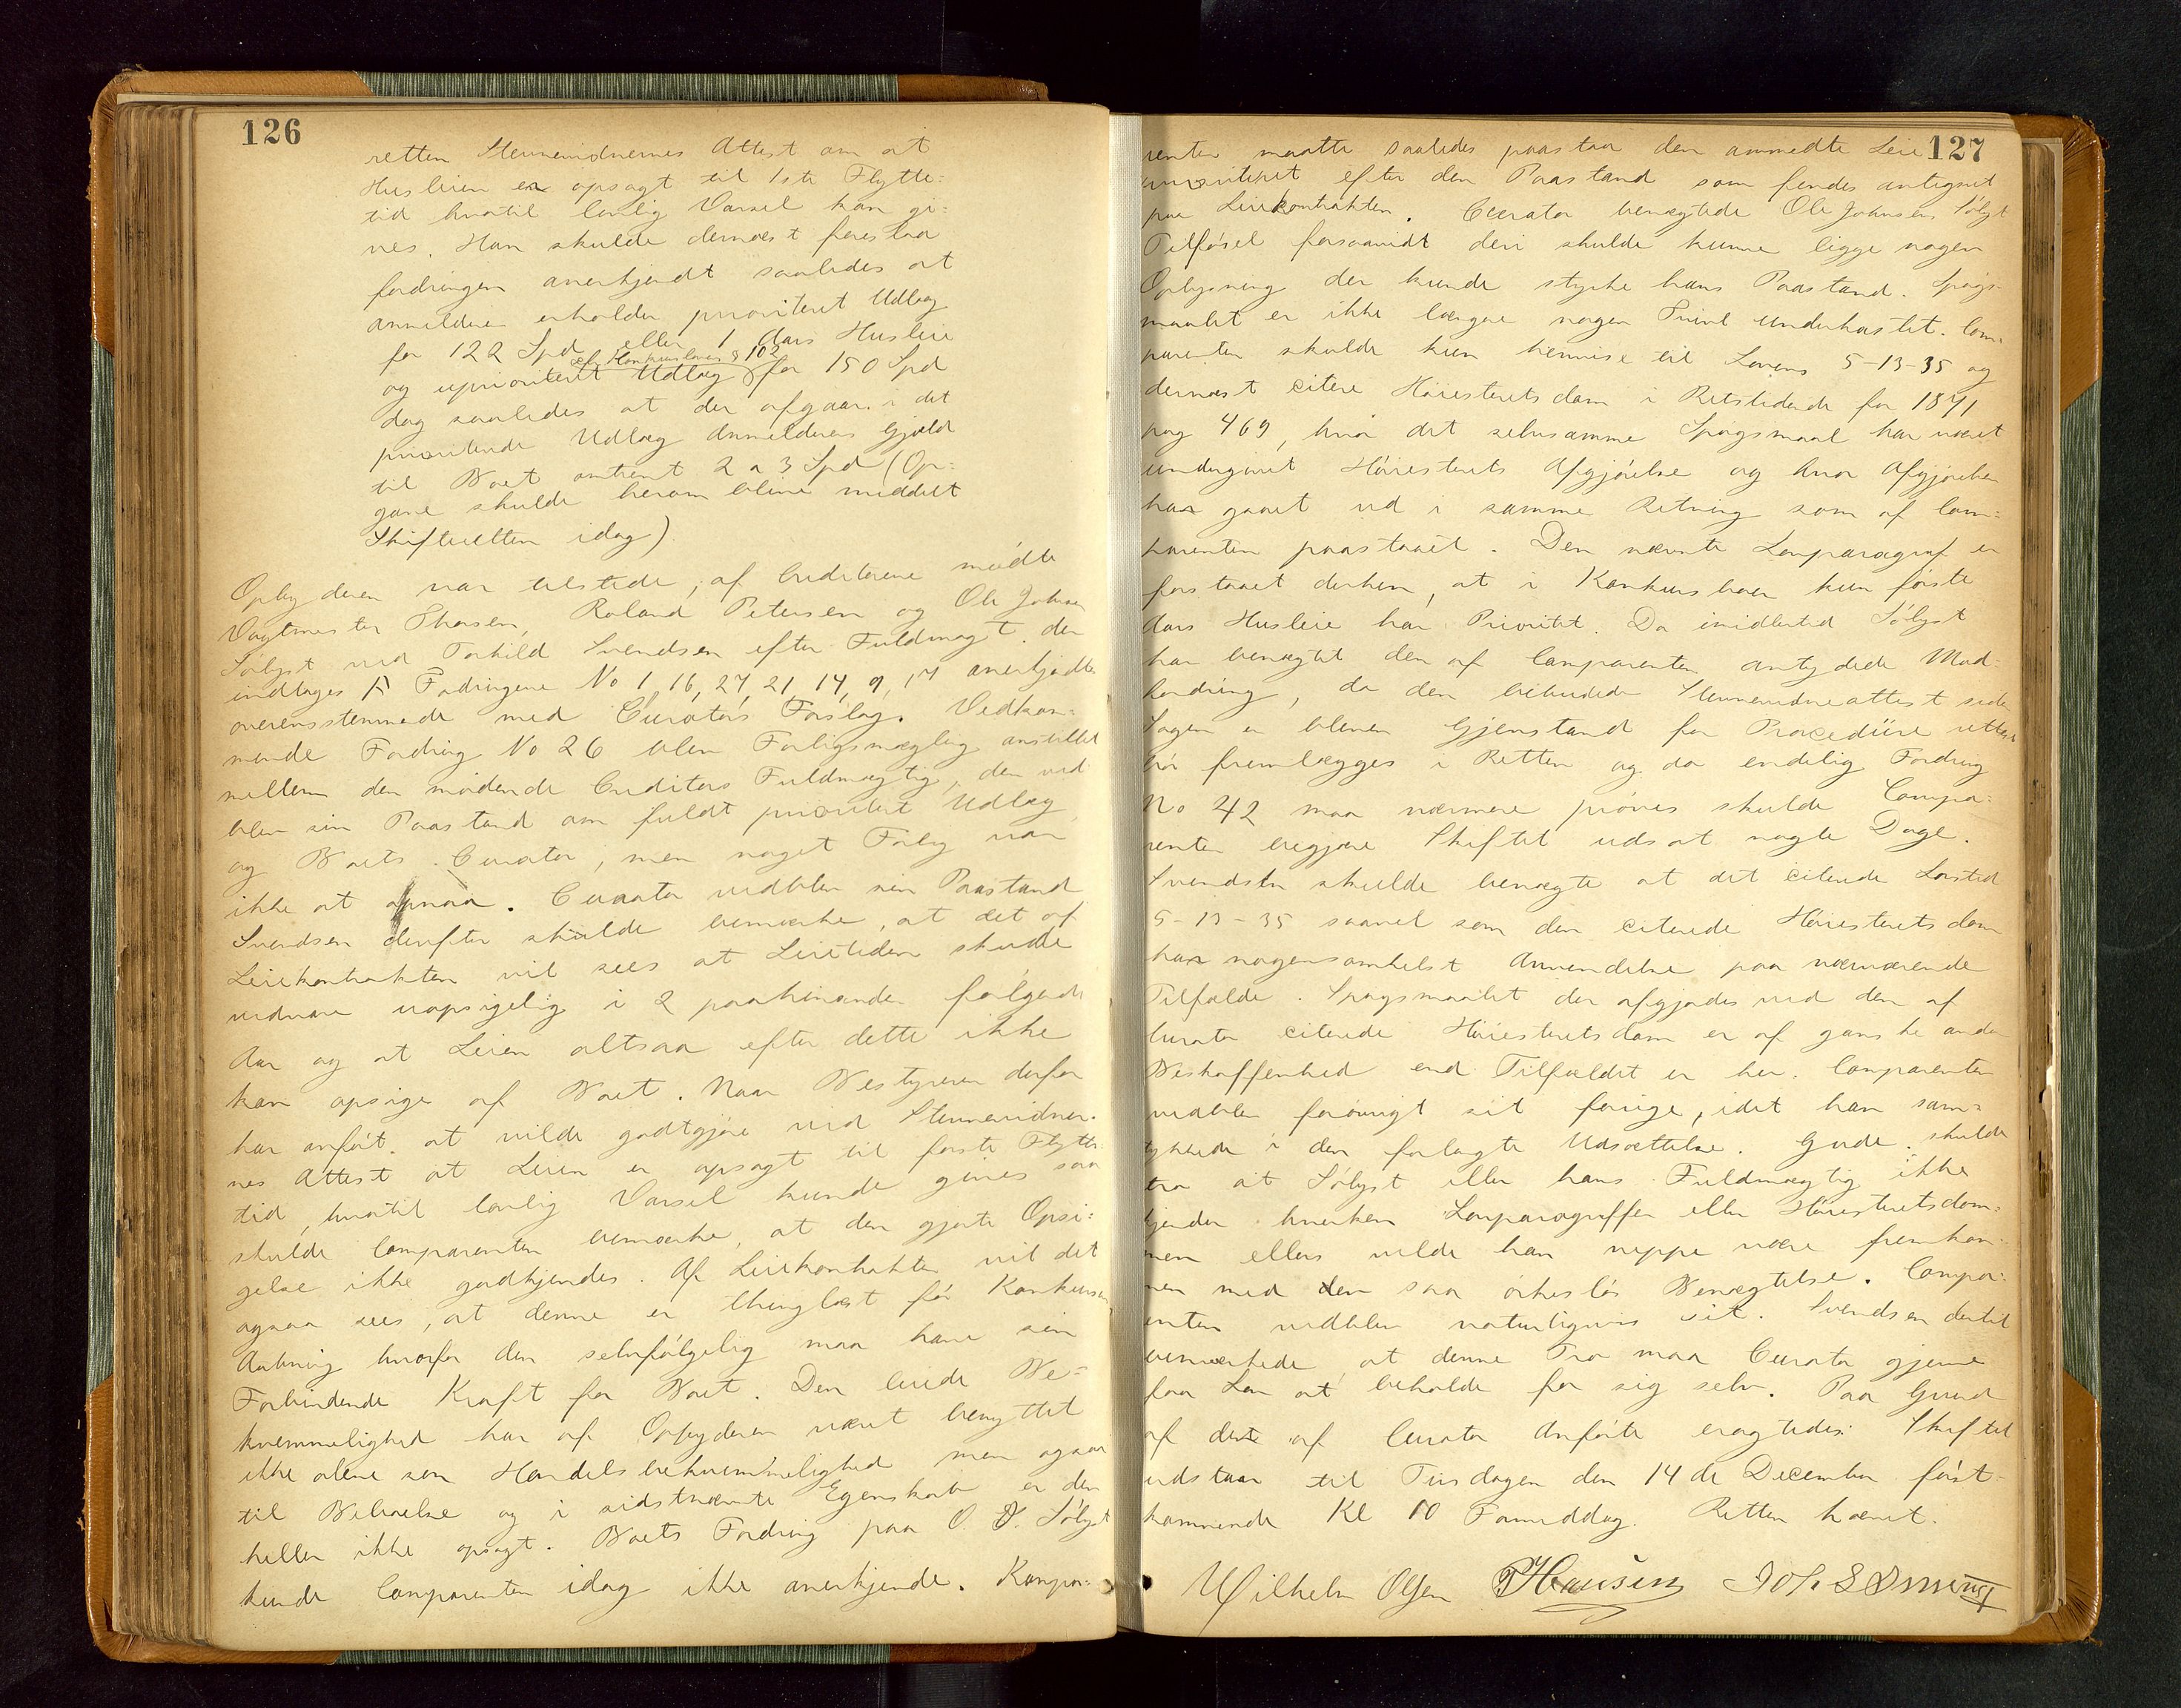 126
retten Stevnevidnernes Attest om at
Husleien er opsagt til 1ste Flytte-
tid hvortil lovlig Varsel kan gi-
ves. Han skulde dernæst foreslaa
fordringen anerkjendt saaledes at
Anmelderen erholder prioriteret Udlæg
for 122 Spd eller 1 Aars Husleie
ef Konkurslovens § 102
og uprioriteret Udlæg for 150 Spd
dog saaledes at der afgaar i det
prioriterede Udlæg Anmelderens Gjæld
til Boet omtrent 2 a 3 Spd (Op-
gave skulde herom blive meddelt
Skifteretten idag).
Opbyderen var tilstede, af Creditorerne mødte
Vagtmester Thorsen, Roland Petersen og Ole Johnsen
Sølyst ved Torkild Svendsen efter Fuldmagt, der
indtages A Fordringene No 1, 16, 27, 21, 14, 9, 17 anerkjendte
overensstemmende med Curators Forslag. Vedkom-
mende Fordring No 26 blev Forligsmægling anstillet
mellem den mødende Creditors Fuldmægtig, der ved
blev sin Paastand om fuldt prioriteret Udlæg,
og Boets Curator, men noget Forlig var
ikke at opnaa. Curator vedblev sin Paastand
Svendsen derefter skulde bemærke, at det af
Leiekontrakten vil sees at Leietiden skulde
vedvare uopsigelig i 2 paahinanden følgende
Aar og at Leien altsaa efter dette ikke
kan opsiges af Boet. Naar Bestyreren derfor
har anført at vilde godtgjøre ved Stevnevidner-
nes Attest at Leien er opsagt til første Flytte-
tid, hvortil lovlig Varsel kunde gives saa
skulde Comparenten bemærke, at den gjorte Opsi-
gelse ikke godkjendes. Af Leiekontrakten vil det
ogsaa sees, at denne er thinglæst før Konkursens
Aabning hvorfor den selvfølgelig maa have sin
Forbindende Kraft for Boet. Den leiede Be-
kvemmelighed har af Opbyderen været benyttet
ikke alene som Handelsbekvemmelighed men ogsaa
til Beboelse og i sidstnævnte Egenskab er den
heller ikke opsagt. Boets Fordring paa O. J. Sølyst
kunde Comparenten idag ikke anerkjende. Kompa-
127
renten maatte saaledes paastaa den anmeldte Leie
prioriteret efter den Paastand som findes antegnet
paa Leiekontrakten. Curator benægtede Ole Johnsen Sølyst
Tilførsel forsaavidt deri skulde kunne ligge nogen
Oplysning der kunde styrke hans Paastand. Spørgs-
maalet er ikke længere nogen Tvivl underkastet. Com-
parenten skulde kun henvise til Lovens 5-13-35 og
dernæst citere Høiesteretsdom i Retstidende for 1871
pag 469, hvor det selvsamme Spørgsmaal har været
undergivet Høiesterets Afgjørelse og hvor Afgjørelsen
har gaaet ud i samme Retning som af Com-
parenten paastaaet. Den nævnte Lovparagraf er
forstaaet derhen, at i Konkursboer kun første
Aars Husleie har Prioritet. Da imidlertid Sølyst
har benægtet den af Comparenten antydede Mod-
fordring, da den bebudede Stevnevidneattest siden
Sagen er bleven Gjenstand for Procedüre rettest
bør fremlægges i Retten og da endelig Fordring
No 42 maa nærmere prøves skulde Compa-
renten begjære Skiftet udsat nogle Dage.
Svendsen skulde benægte at det citerede Lovsted
5-13-35 saavel som den citerede Høiesteretsdom
har nogensomhelst Anvendelse paa nærværende
Tilfælde. Spørgsmaalet der afgjordes ved den af
Curator citerede Høiesteretsdom er af ganske anden
Beskaffenhed end Tilfældet er her. Comparenten
vedblev forøvrigt sit forrige, idet han sam-
tykkede i den forlangte Udsættelse. Gude skulde
tro at Sølyst eller hans Fuldmægtig ikke
kjender hverken Lovparagraffen eller Høiesteretsdom-
men ellers vilde han neppe være fremkom-
men med den saa ørkesløs Benægtelse. Compar-
enten vedblev naturligvis sit. Svendsen dertil
bemærkede, at denne Tro maa Curator gjerne
faa Lov at beholde for sig selv. Paa Grund
af det af Curator Anførte eragtedes: Skiftet
udstaar til Tirsdagen den 14de December først-
kommende Kl 10 Formiddag. Retten hævet.
Wilhelm Olsen PHansen